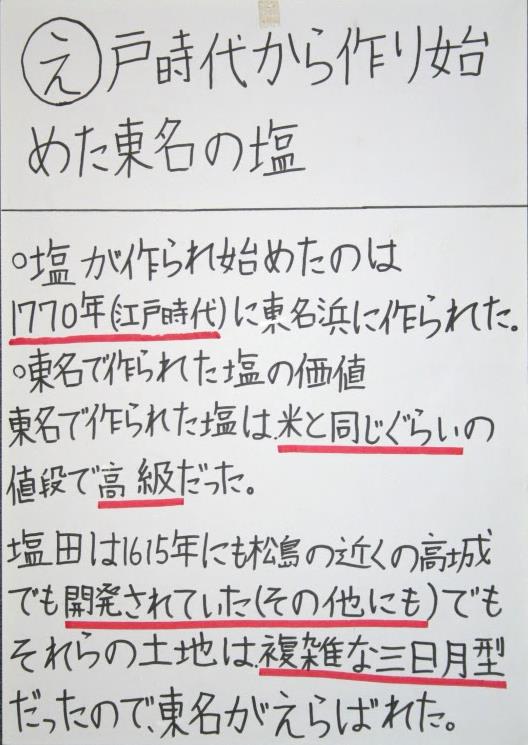 え戸時代から作り始
めた東名の塩
○塩が作られ始めたのは
1770年(江戸時代)に東名浜に作られた。
○東名で作られた塩の価値
東名で作られた塩は、米と同じぐらいの
値段で高級だった。
塩田は1615年にも松島の近くの高城
でも開発されていた(その他にも)でも
それらの土地は、複雑な三日月型
だったので、東名がえらばれた。